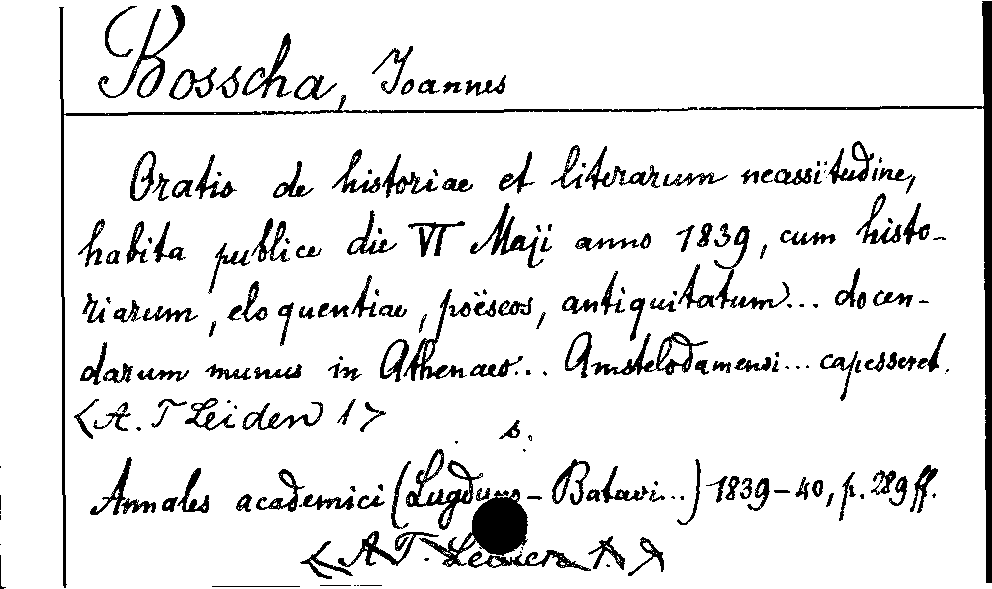 Bosscha, Joannes
Oratio de historiae et literarum necessitudine,
habita publice die VI Maji anno 1839, cum histo-
riarum, eloquentiae, poëseos, antiquitatum... docen-
darum munus in Athenaeo... Amstelodamensi... capesseret.
<A. T Leiden 1>
s.
Annales academici (Lugduno-Batavi...) 1839-40, p. 289 ff.
<A T. Leiden 1.>